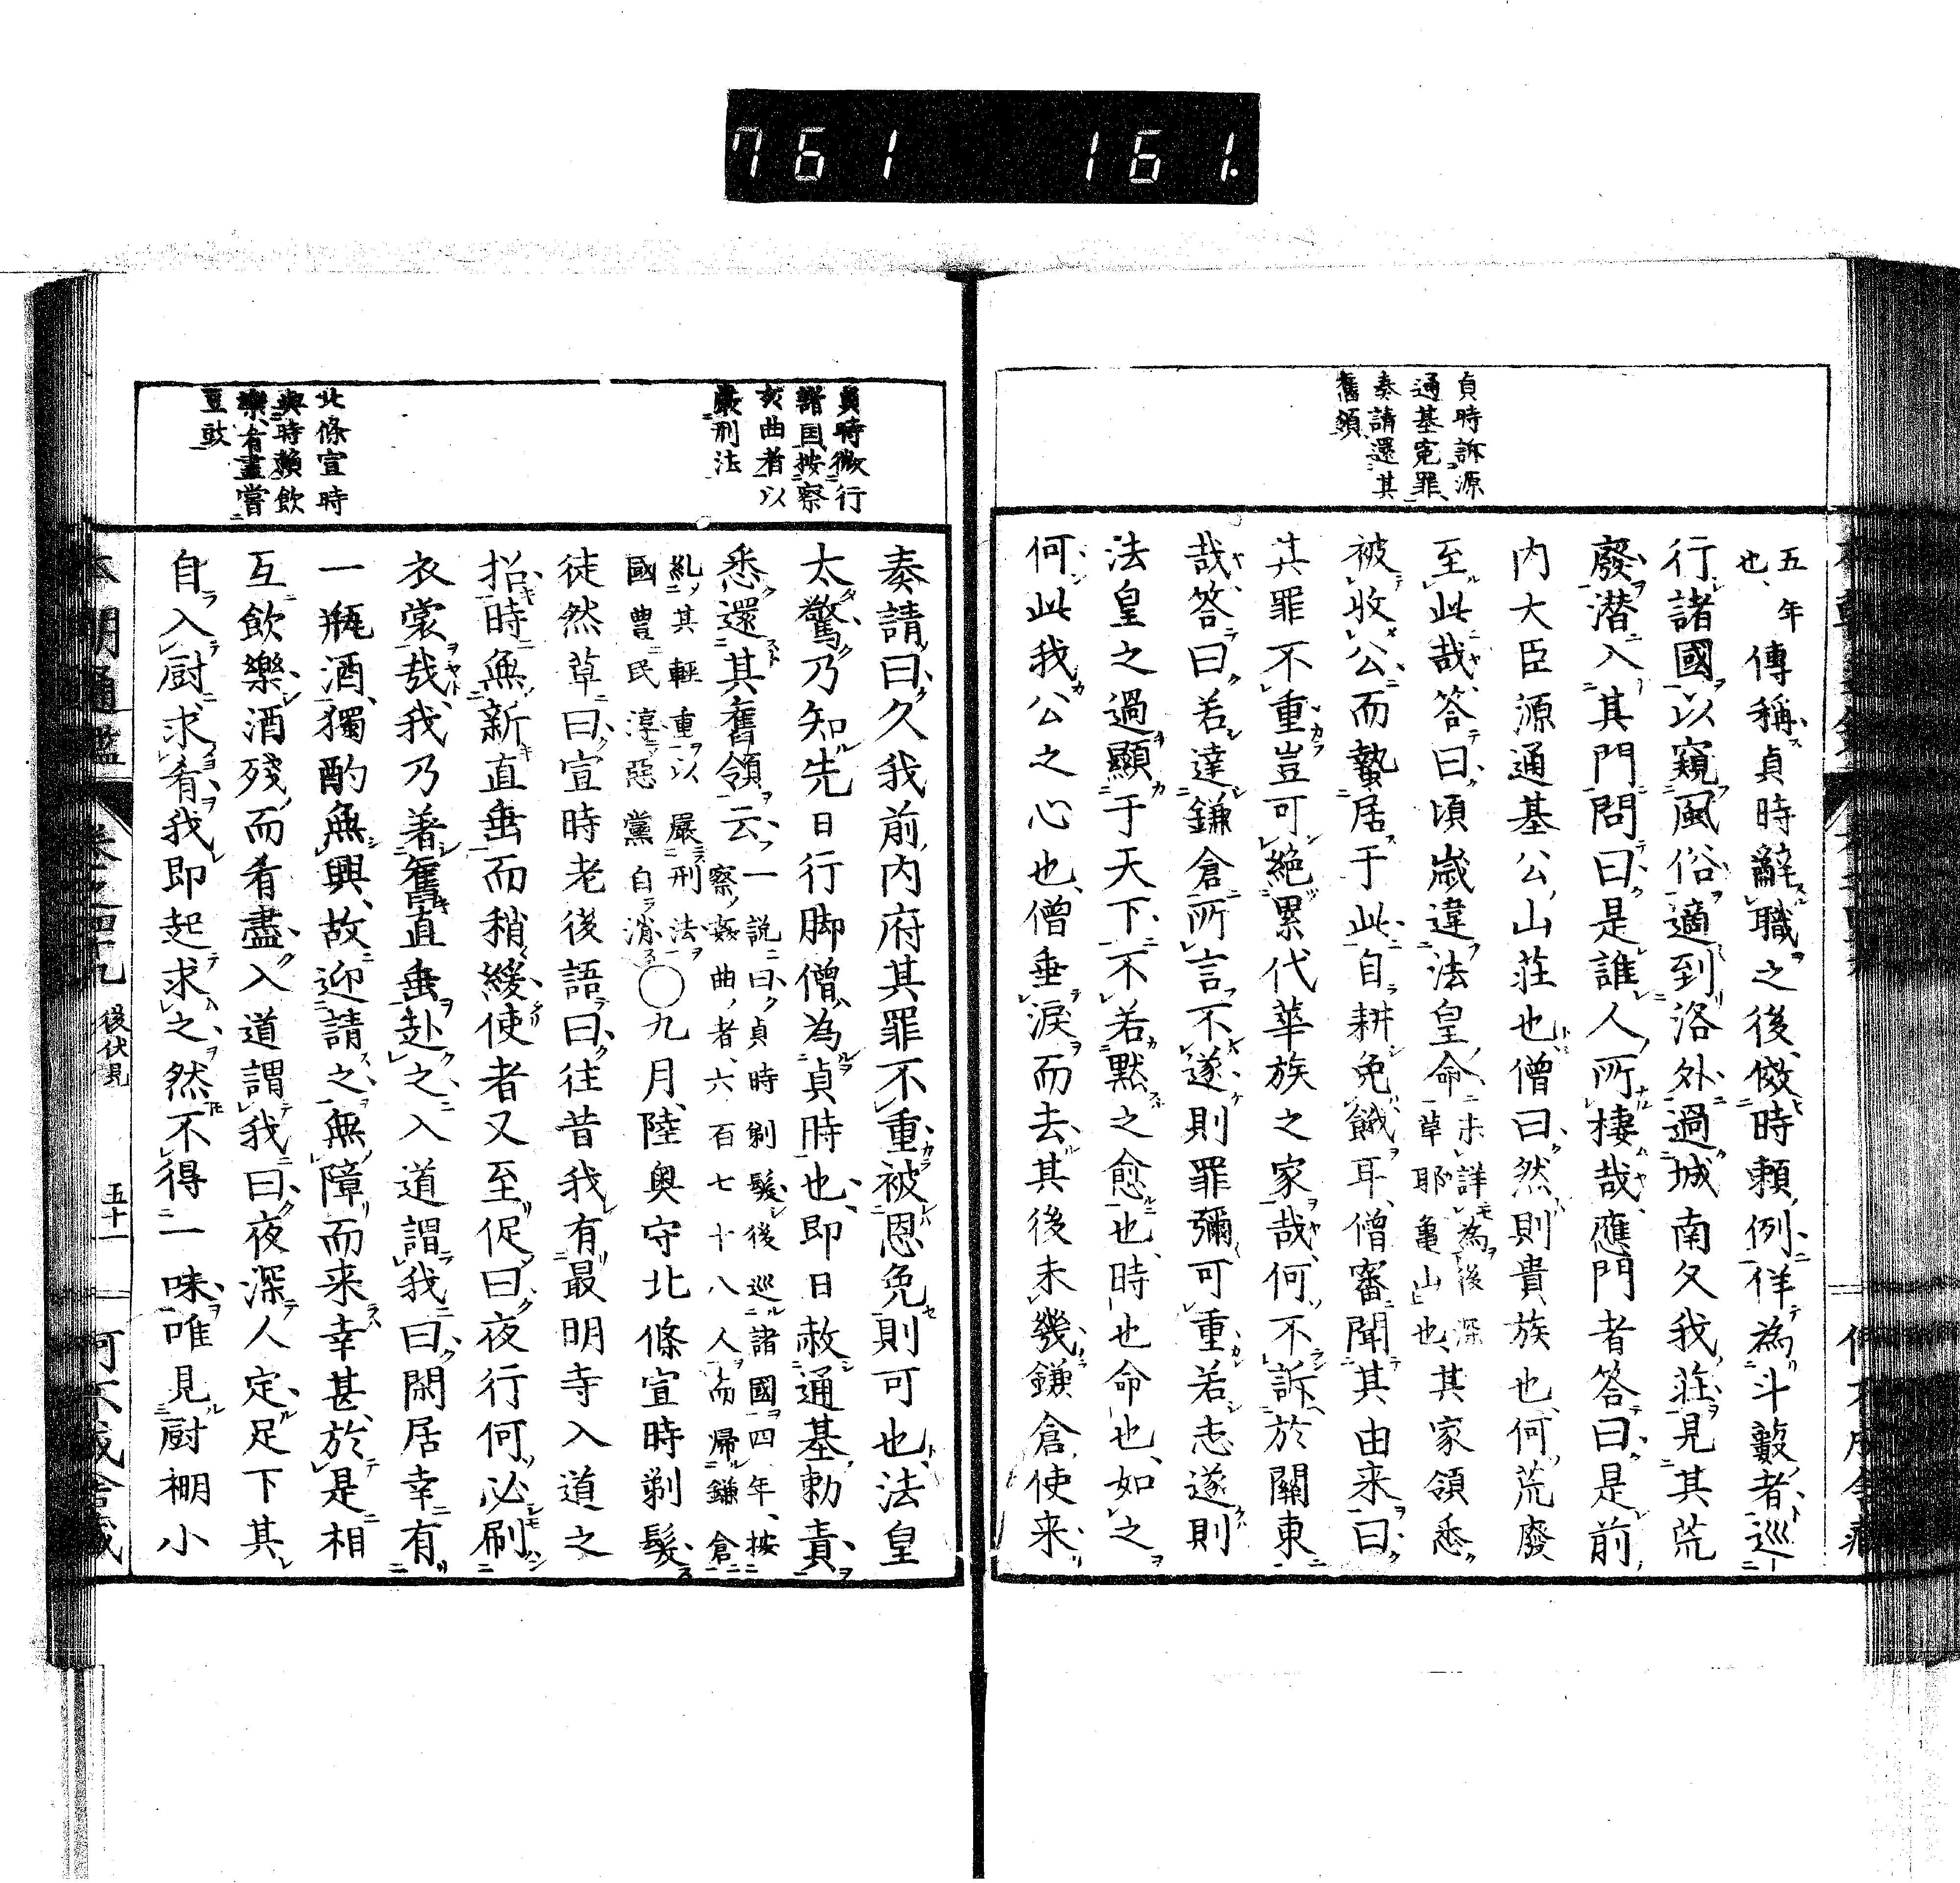 761 161.
貞時訴源
通基寃罪
奏請還其
舊領
五年
也、
傳稱貞時辭職之後、傚時頼例、佯為斗藪者、巡
行諸國以窺風俗、適到洛外、過城南久我莊、見其荒
廢、潜入其門、問曰、是誰人所棲哉、應門者答曰、是前
内大臣源通基公山莊也、僧曰、然則貴族也、何荒廢
至此哉、答曰、頃歳違法皇命、
未詳為後深
草耶亀山也、
其家領悉
被收公、而蟄居于此、自耕免餓耳、僧審聞其由来、曰、
其罪不重、豈可絶累代華族之家哉、何不訴於關東
哉、答曰、若達鎌倉所言不遂、則罪彌可重、若志遂、則
法皇之過顯于天下、不若默之愈也、時也命也、如之
何、此我公之心也、僧垂涙而去、其後未幾、鎌倉使来、
貞時微行
諸国按察
姦曲者以
嚴刑法
北條宣時
與時頼飲
樂、肴盡嘗
豆豉
奏請曰、久我前内府其罪不重、被恩免則可也、法皇
太驚、乃知先日行脚僧為貞時也、即日赦通基勅責、
悉還其舊領云、
一説曰、貞時剃髮後巡諸國四年、按
察姦曲者、六百七十八人、而帰鎌倉
糺其輕重以嚴刑法
國豊民淳惡黨自消
○九月、陸奥守北條宣時剃髮、
徒然草曰、宣時老後語曰、往昔我有最明寺入道之
招、時無新直垂而稍緩、使者又至、促曰、夜行何必刷
衣裳哉、我乃着舊直垂赴之、入道謂我曰、閑居幸有
一瓶酒、獨酌無興、故迎請之、無障而来幸甚、於是相
互飲樂、酒殘而肴盡、入道謂我曰、夜深人定、足下其
自入厨、求肴、我即起求之、然不得一味、唯見厨棚小
本朝通鑑 卷之四十九 後伏見 五十一